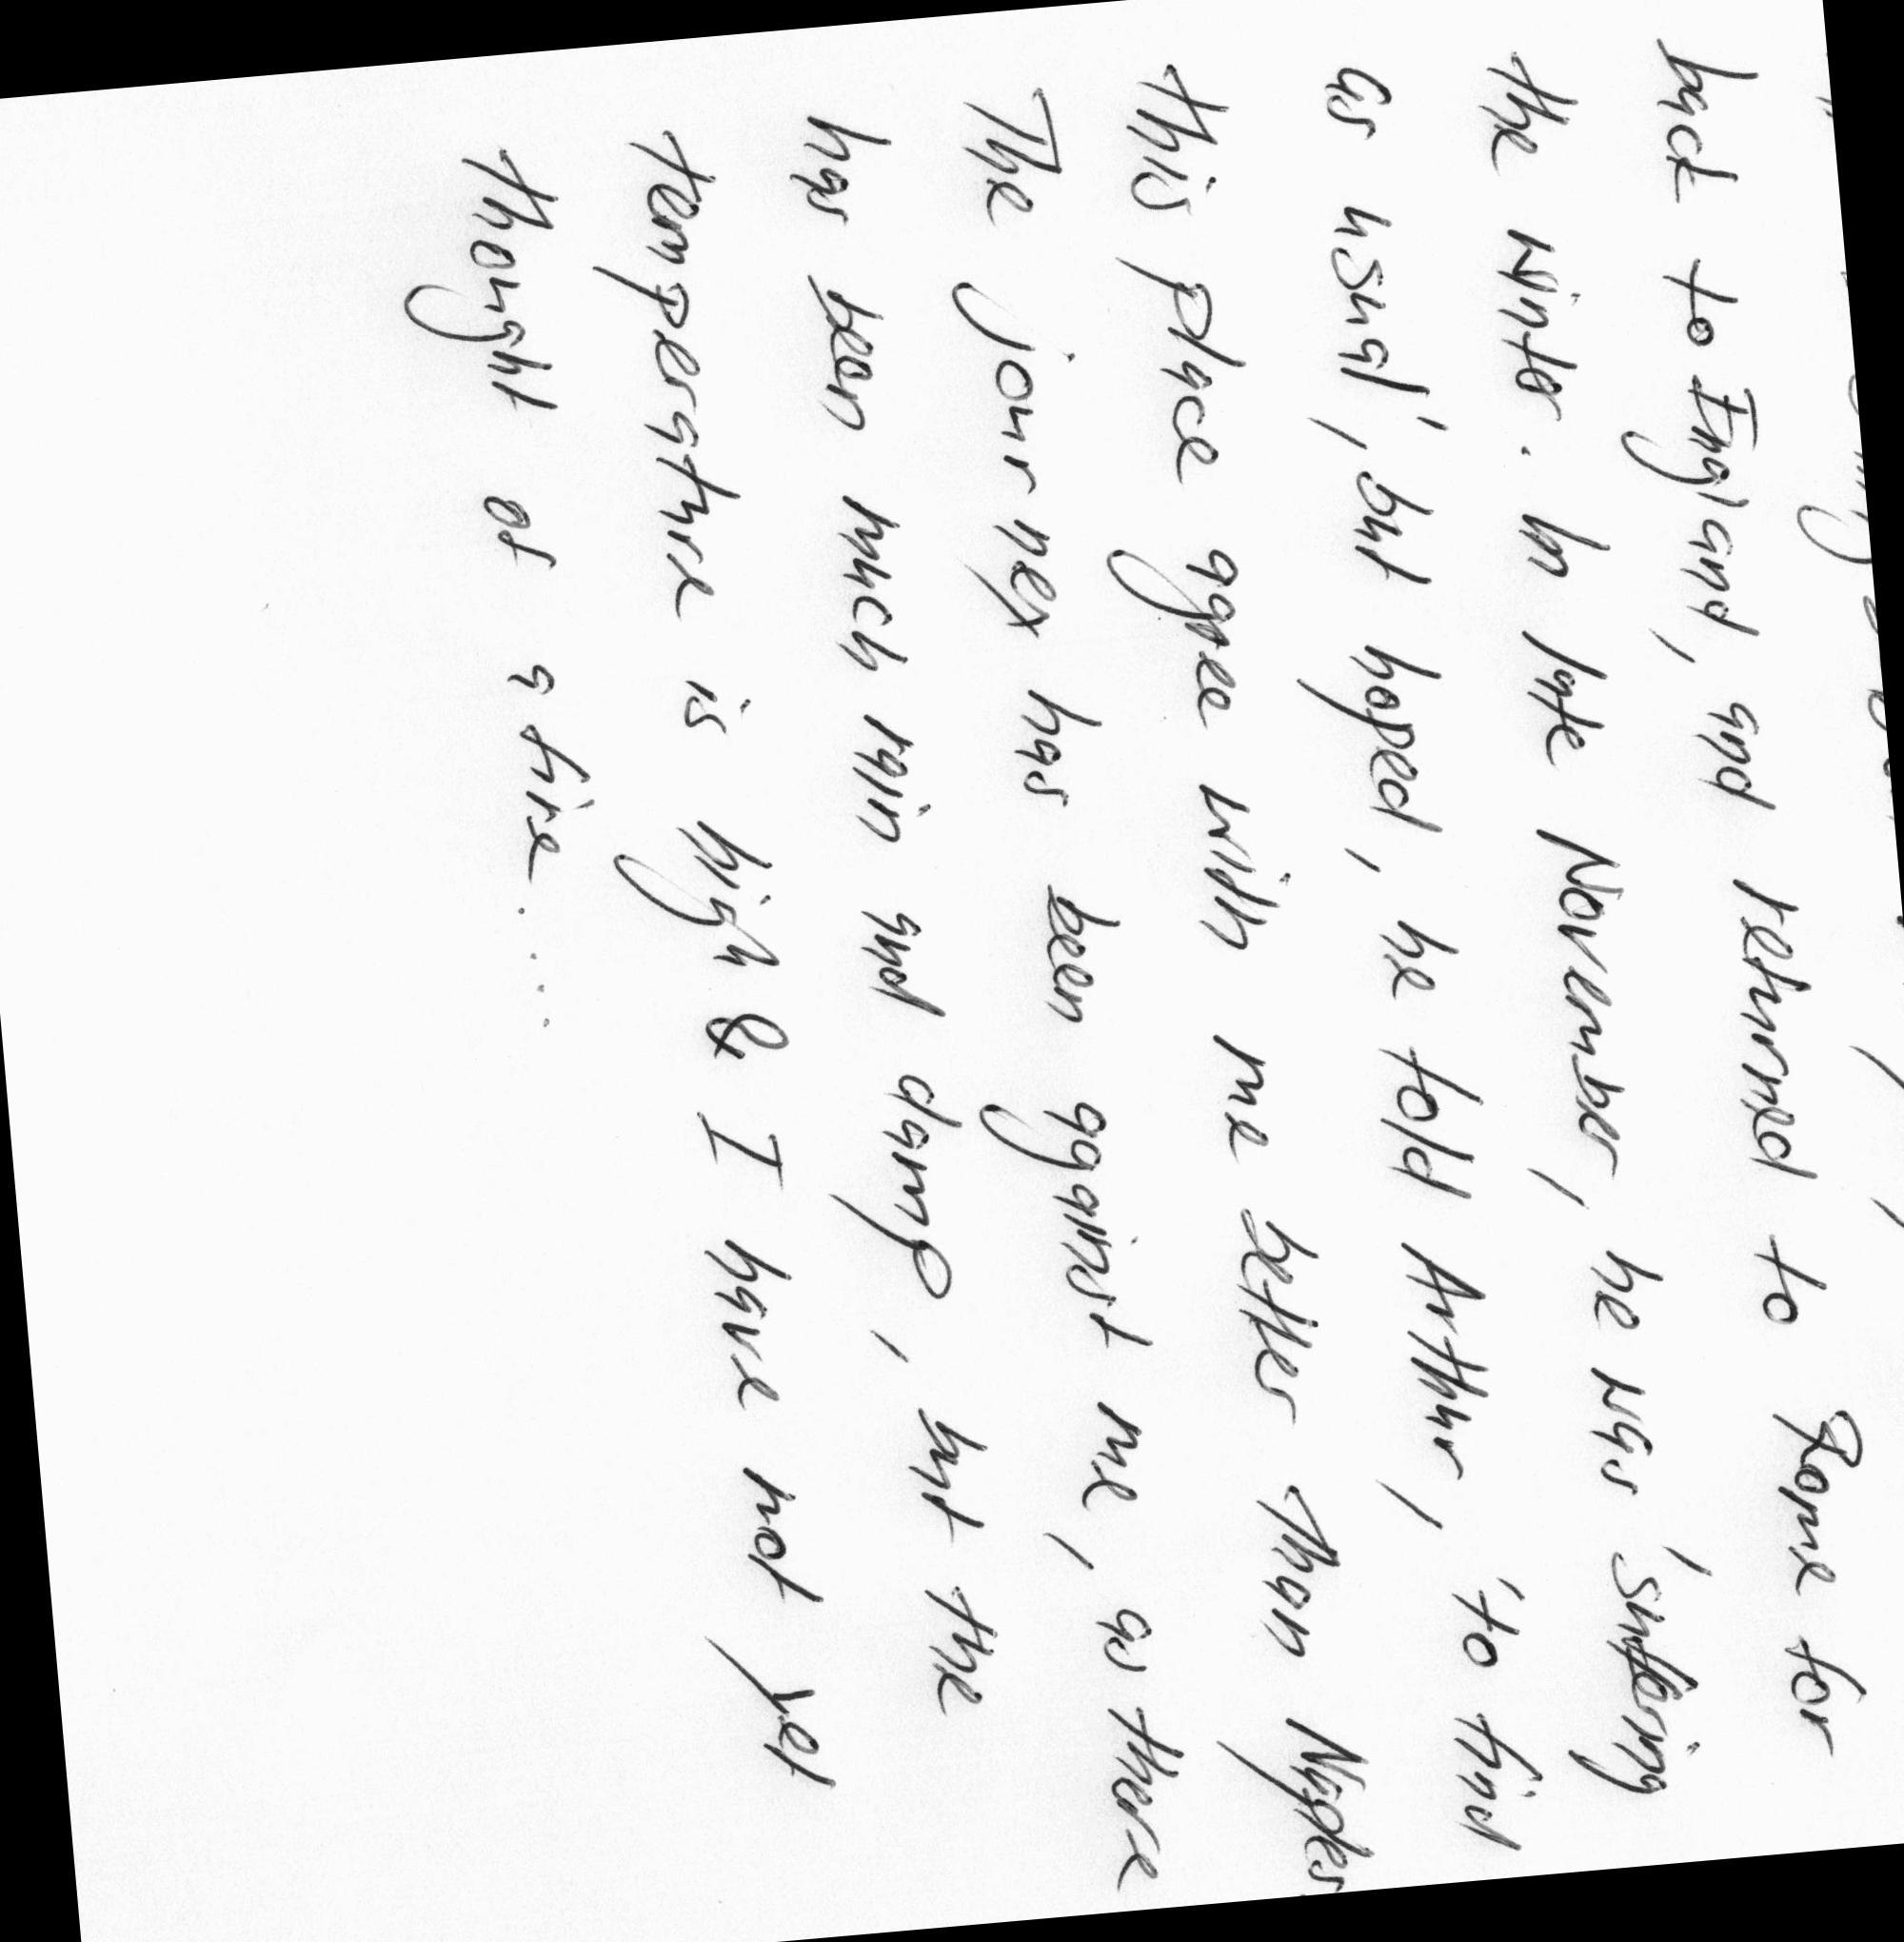 back to England, and returned to Rome for
the winter. In late November, he was 'suffering
as usual', but hoped, he told Arthur, 'to find
this place agree with me better than Naples
The journey has been against me, as there
has been much rain and damp, but the
temperature is high & I have not yet
thought of a fire....